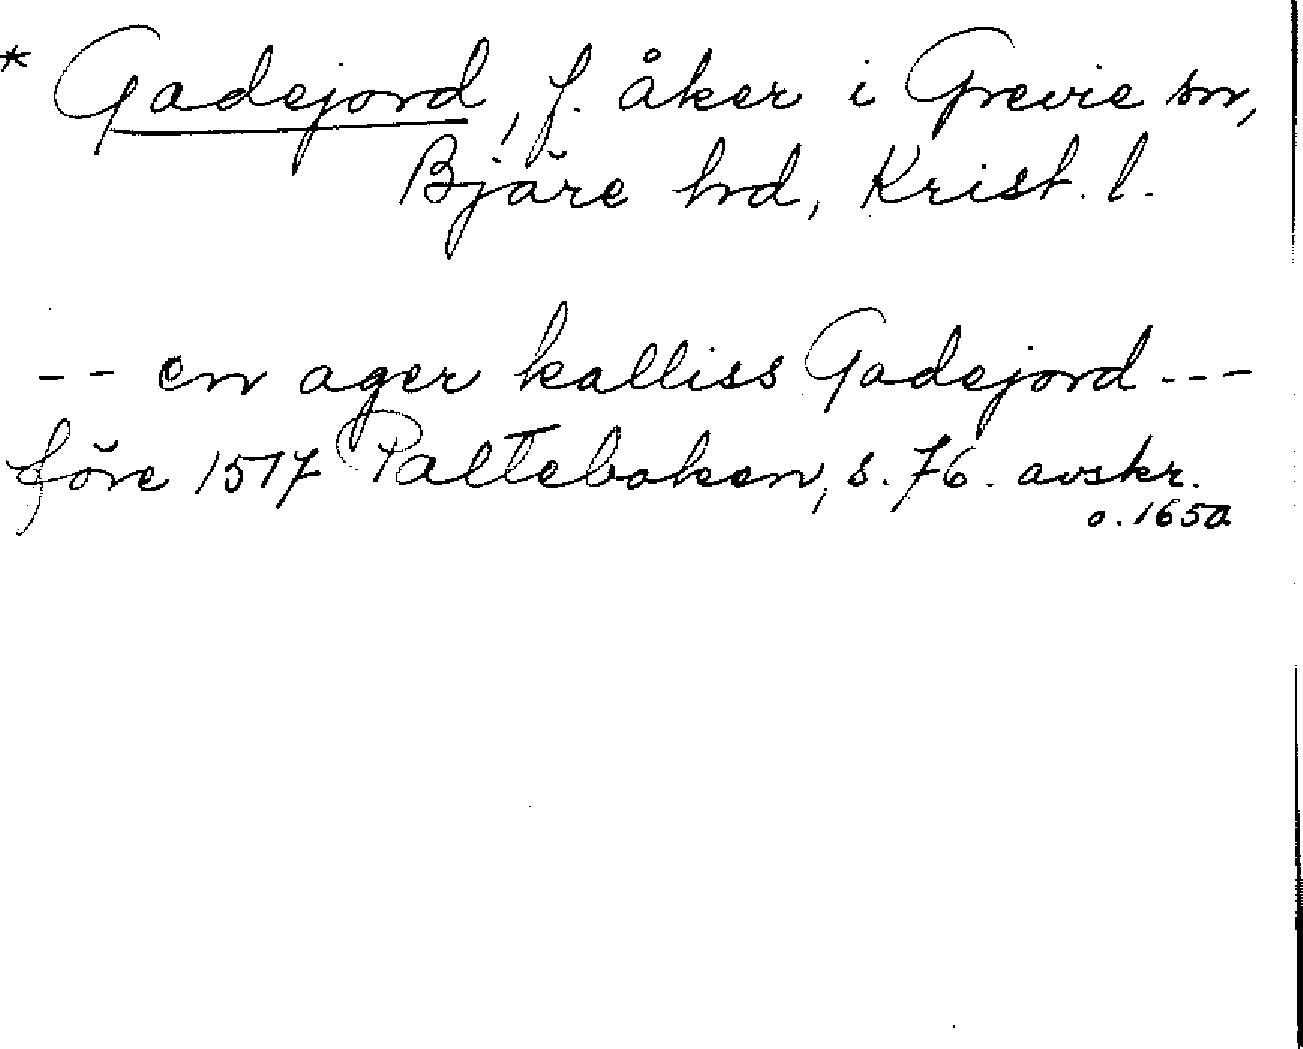 * Gadejord, f. åker i Grevie sn,
Bjäre hd, Krist. l.
-- en ager kalliss Gadejord ---
före 1517 Palteboken, s. 76. avskr.
o. 1650